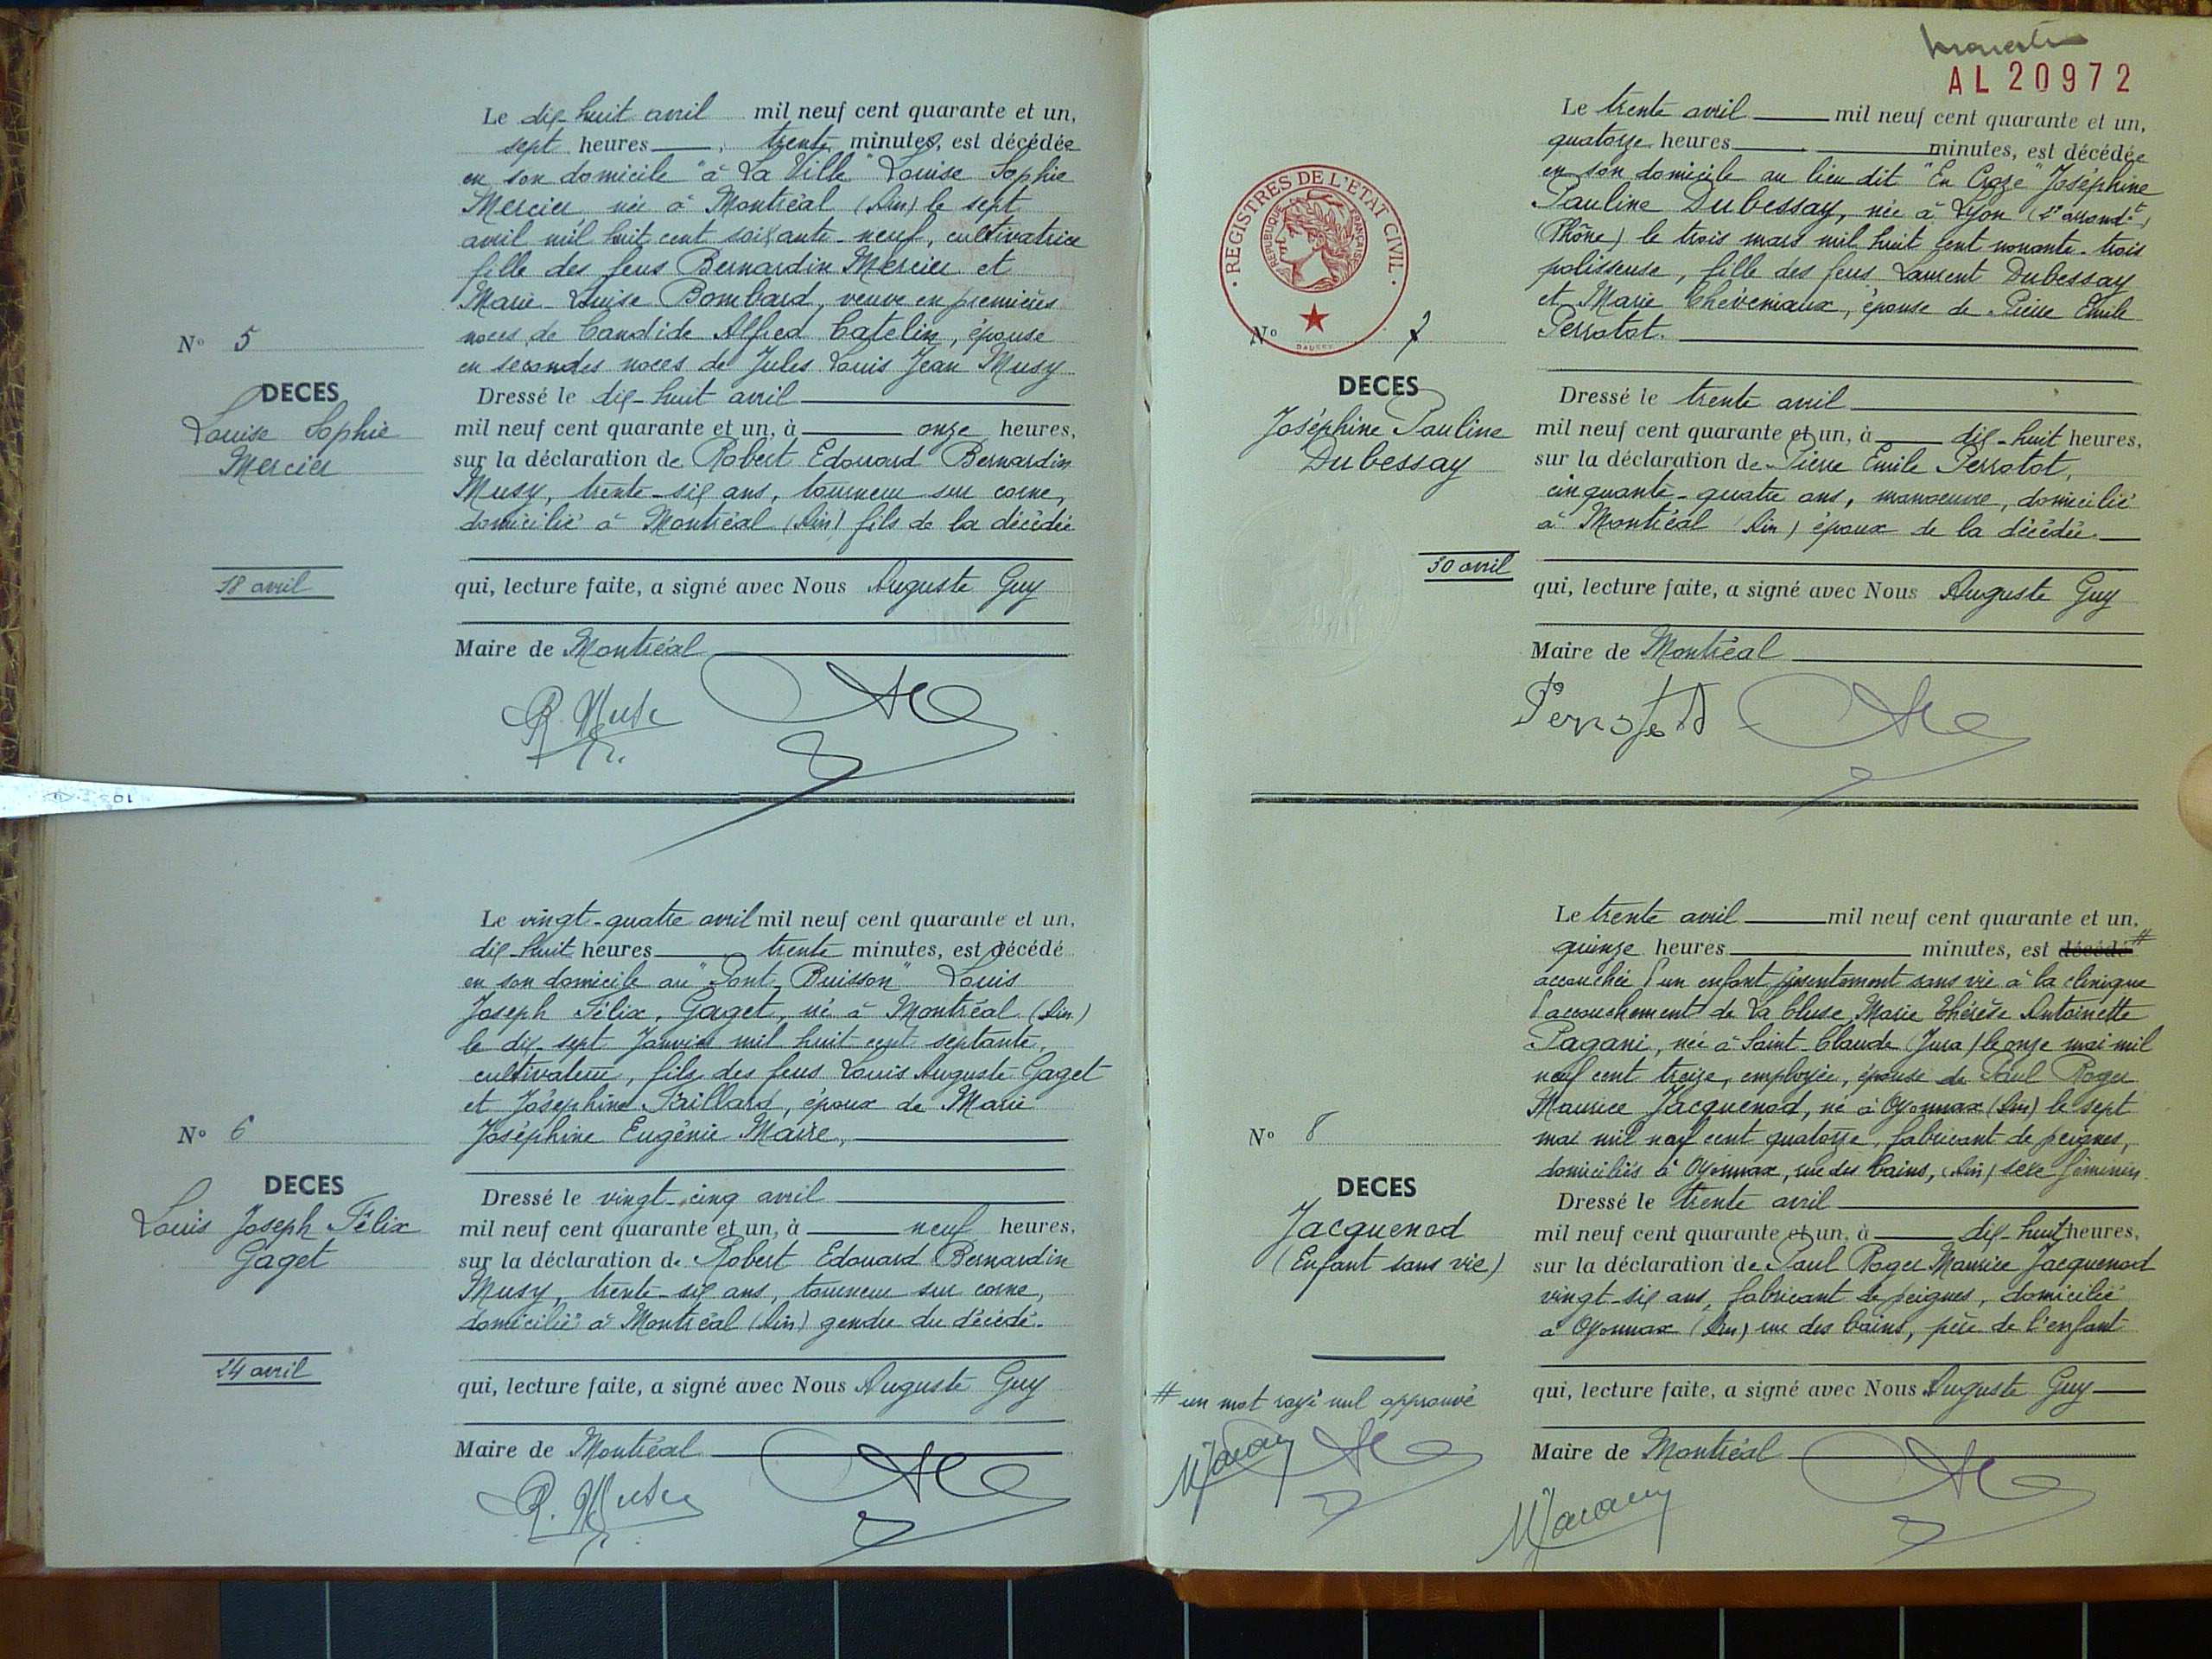 Le dix-huit avril mil neuf cent quarante et un,
sept heures trente minutes, est décédée
en son domicile "à La Ville" Louise Sophie
Mercier, née à Montréal (Ain) le sept
avril mil huit cent soixante-neuf, cultivatrice
fille des feus Bernardin Mercier et
Marie Louise Bombard, veuve en premières
noces de Candide Alfred Catelin, épouse
en secondes noces de Jules Louis Jean Musy
N° 5
DECES
Louise Sophie
Mercier
18 avril
Dressé le dix-huit avril
mil neuf cent quarante et un, à onze heures,
sur la déclaration de Robert Edouard Bernardin
Musy, trente-six ans, tourneur sur corne,
domicilié à Montréal (Ain) fils de la décédée
qui, lecture faite, a signé avec Nous Auguste Guy
Maire de Montréal
R. Musy
Le vingt-quatre avril mil neuf cent quarante et un,
dix-huit heures trente minutes, est décédé
en son domicile au "Pont Buisson" Louis
Joseph Félix, Gaget, né à Montréal (Ain)
le dix-sept Janvier mil huit cent septante,
cultivateur, fils des feus Louis Auguste Gaget
et Joséphine Paillard, époux de Marie
Joséphine Eugénie Maire,
N° 6
DECES
Louis Joseph Félix
Gaget
24 avril
Dressé le vingt-cinq avril
mil neuf cent quarante et un, à neuf heures,
sur la déclaration de Robert Edouard Bernardin
Musy, trente-six ans, tourneur sur corne,
domicilié à Montréal (Ain) gendre du décédé.
qui, lecture faite, a signé avec Nous Auguste Guy
Maire de Montréal
R. Musy
AL 20972
Le trente avril mil neuf cent quarante et un,
quatorze heures minutes, est décédée
en son domicile au lieu dit "En Croze" Joséphine
Pauline Dubessay, née à Lyon arrondt)
(Rhône) le trois mars mil huit cent nonante-trois
polisseuse, fille des feus Laurent Dubessay
et Marie Chéveniaux, épouse de Pierre Emile
Perrotot.
REGISTRES DE L'ETAT CIVIL
REPUBLIQUE FRANCAISE
N° 7
DECES
Joséphine Pauline
Dubessay
30 avril
Dressé le trente avril
mil neuf cent quarante et un, à dix-huit heures,
sur la déclaration de Pierre Emile Perrotot,
cinquante-quatre ans, manoeuvre, domicilié
à Montréal (Ain) époux de la décédée.
qui, lecture faite, a signé avec Nous Auguste Guy
Maire de Montréal
Le trente avril mil neuf cent quarante et un,
quinze heures minutes, est décédé #
accouchée d'un enfant présentement sans vie à la clinique
d'accouchement de La Cluse, Marie Thérèse Antoinette
Pagani, née à Saint-Claude (Jura) le onze mai mil
neuf cent treize, employée, épouse de Paul Roger
Maurice Jacquenod, né à Oyonnax (Ain) le sept
mai mil neuf cent quatorze, fabricant de peignes,
domiciliés à Oyonnax, rue des bains, (Ain) sexe féminin.
N° 8
DECES
Jacquenod
(Enfant sans vie)
# un mot rayé nul approuvé
Dressé le trente avril
mil neuf cent quarante et un, à dix-huit heures,
sur la déclaration de Paul Roger Maurice Jacquenod
vingt-six ans, fabricant de peignes, domicilié
à Oyonnax (Ain) rue des bains, père de l'enfant
qui, lecture faite, a signé avec Nous Auguste Guy
Maire de Montréal